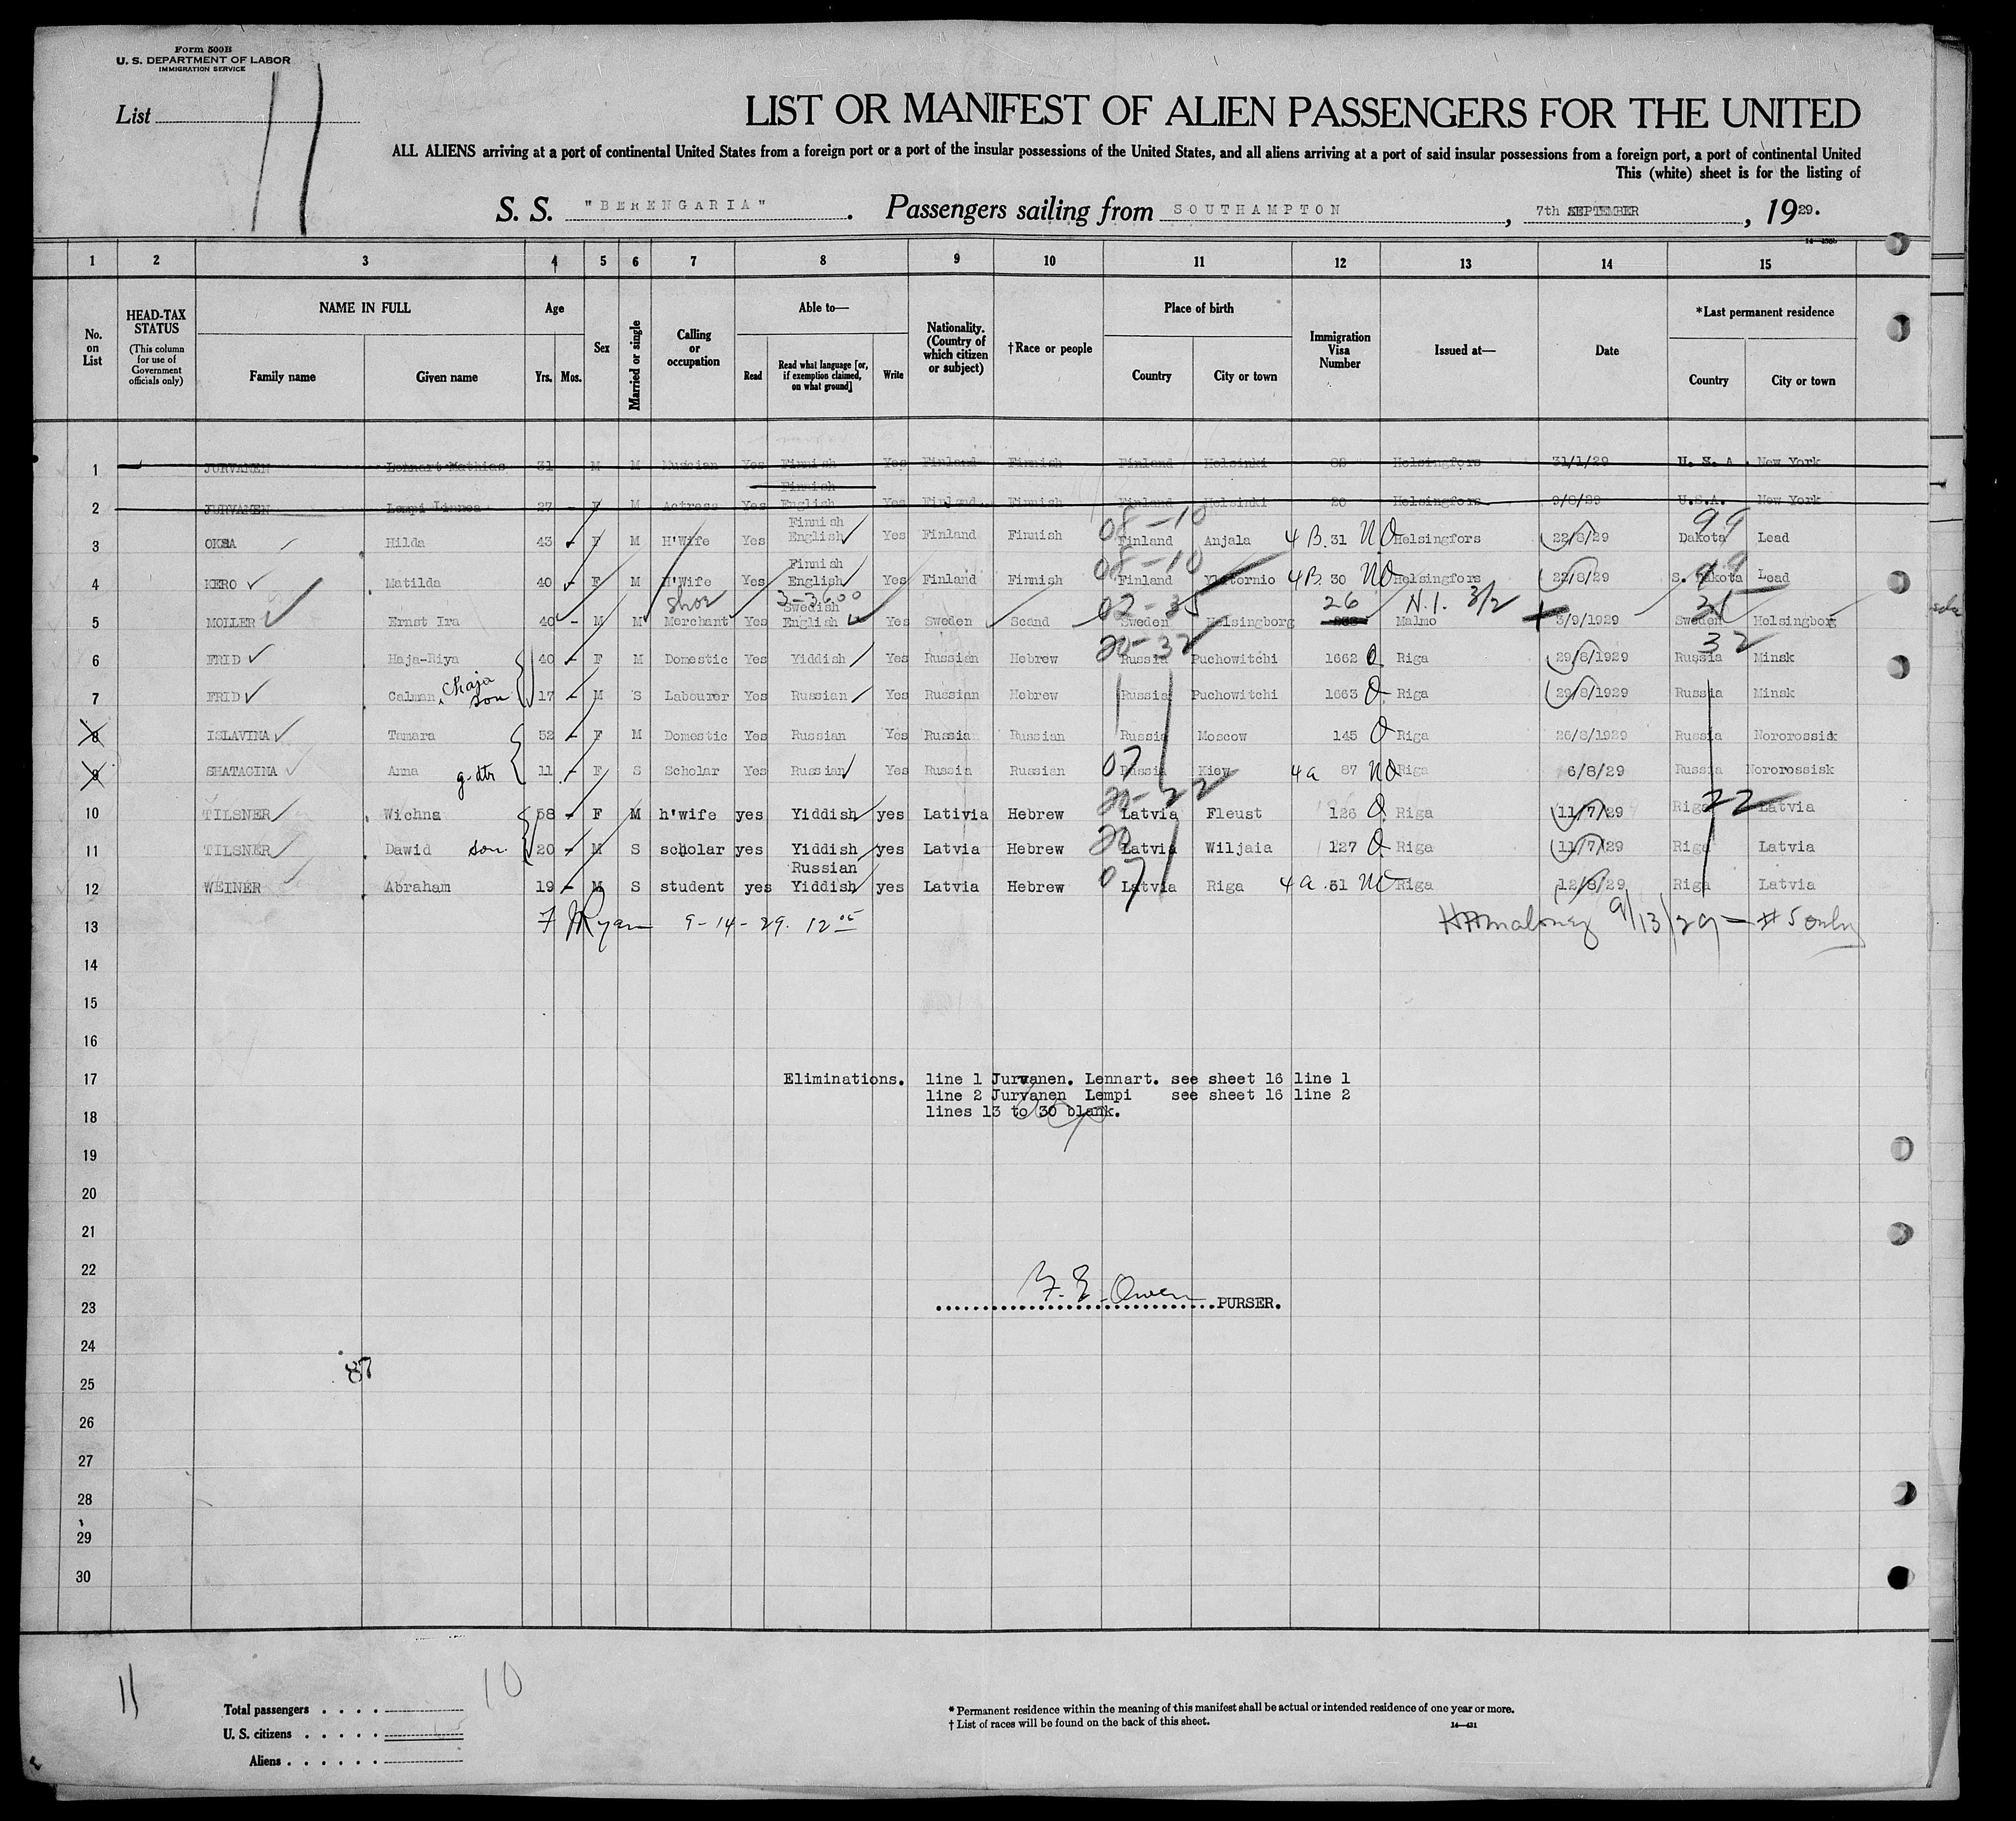 Form 500B
U. S. DEPARTMENT OF LABOR
IMMIGRATION SERVICE
List 11
LIST OR MANIFEST OF ALIEN PASSENGERS FOR THE UNITED
ALL ALIENS arriving at a port of continental United States from a foreign port or a port of the insular possessions of the United States, and all aliens arriving at a port of said insular possessions from a foreign port, a port of continental United
This (white) sheet is for the listing of
S. S. "BERENGARIA". Passengers sailing from SOUTHAMPTON, 7th SEPTEMBER, 1929.
1 2 3 4 5 6 7 8 9 10 11 12 13 14 15
No. on List
HEAD-TAX STATUS (This column for use of Government officials only)
NAME IN FULL
Family name Given name
Age
Yrs. Mos.
Sex
Married or single
Calling or occupation
Able to—
Read Read what language [or, if exemption claimed, on what ground] Write
Nationality. (Country of which citizen or subject)
†Race or people
Place of birth
Country City or town
Immigration Visa Number
Issued at—
Date
*Last permanent residence
Country City or town
1 JURVANEN Lennart Mathias 31 M M Musician Yes Finnish Yes Finland Finnish Finland Helsinki Helsingfors 31/1/29 U.S.A. New York
2 JURVANEN Lempi Linnea 27 - F M Actress Yes Finnish English Yes Finland Finnish Finland Helsinki 20 Helsingfors 9/8/29 U.S.A. New York
3 OKSA Hilda 43 - F M H'Wife Yes Finnish English Yes Finland Finnish 08-10 Finland Anjala 4 B. 31 NO Helsingfors 22/8/29 99 Dakota Lead
4 KERO Matilda 40 - F M H'Wife Yes Finnish English Yes Finland Finnish 08-10 Finland Ylitornio 4 B. 30 NO Helsingfors 22/8/29 99 S. Dakota Lead
5 MOLLER Ernst Ira 40 - M M shoe Merchant Yes 3-3600 Swedish English Yes Sweden Scand 02-35 Sweden Helsingborg 26 N.I. 3/2 Malmo 3/9/1929 35 Sweden Helsingborg
6 FRID Haja-Riya 40 - F M Domestic Yes Yiddish Yes Russian Hebrew 20-32 Russia Puchowitchi 1662 Riga 29/8/1929 32 Russia Minsk
7 FRID Calman, Chaja son 17 - M S Labourer Yes Russian Yes Russian Hebrew Russia Puchowitchi 1663 Riga 29/8/1929 Russia Minsk
8 ISLAVINA Tamara 52 - F M Domestic Yes Russian Yes Russia Russian Russia Moscow 145 Riga 26/8/1929 Russia Nororossisk
9 SHATAGINA Anna g-dtr 11 - F S Scholar Yes Russian Yes Russia Russian 07 Russia Kiew 4a 87 NO Riga 6/8/29 Russia Nororossisk
10 TILSNER Wichna 58 - F M h'wife yes Yiddish yes Lativia Hebrew 20-22 Latvia Fleust 126 Riga 11/7/29 Riga 22 Latvia
11 TILSNER Dawid son 20 - M S scholar yes Yiddish yes Latvia Hebrew 20 Latvia Wiljaia 127 Riga 11/7/29 Riga Latvia
12 WEINER Abraham 19 - M S student yes Russian Yiddish yes Latvia Hebrew 07 Latvia Riga 4a .51 NO Riga 12/8/29 Riga Latvia
13 F J Ryan 9-14-29. 12 05 HAMaloney 9/13/29 — #5 only
14
15
16
17 Eliminations. line 1 Jurvanen. Lennart. see sheet 16 line 1
line 2 Jurvanen Lempi see sheet 16 line 2
18 lines 13 to 30 blank.
19
20
21
22
23 F. E. Owen PURSER.
24
87
25
26
27
28
29
30
11 10
Total passengers
U. S. citizens
Aliens
* Permanent residence within the meaning of this manifest shall be actual or intended residence of one year or more.
† List of races will be found on the back of this sheet. 14—431